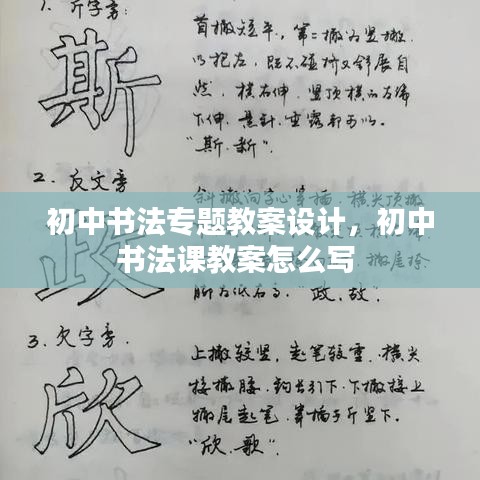 1. 斤字旁:
斯
首撇短平,第二撇为竖撇,
以把左,既不碰撇又舒展自
然,横右伸,竖顶横的
下伸,悬针,垂露都可以。
"斯.新".
2. 反文旁
政
撇向字心穿插,横尖顶撇
初中书法专题教案设计，初中
书法课教案怎么写
脚为低右高."政.故."
3. 欠字旁.
欣
上撇较竖,起笔较重.横尖
接撇腰.钩长引下.下撇接上
撇尾起笔.穿插于斤竖下.
"欣.歌."